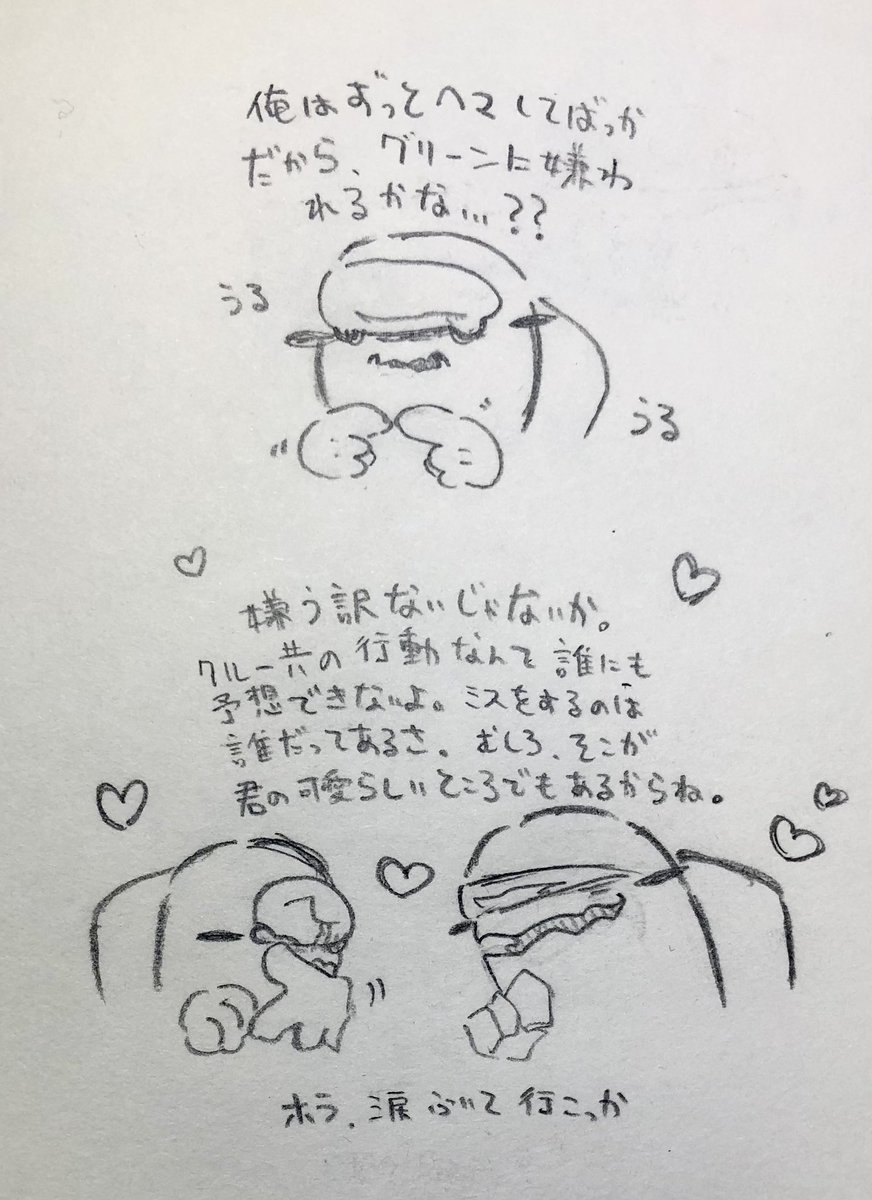 俺はずっとヘマしてばっか
だから、グリーンに嫌わ
れるかな...??
うる
うる
嫌う訳ないじゃないか。
クルー共の行動なんて誰にも
予想できないよ。ミスをするのは
誰だってあるさ。むしろ、そこが
君の可愛らしいところでもあるからね。
ホラ、涙ふいて行こっか